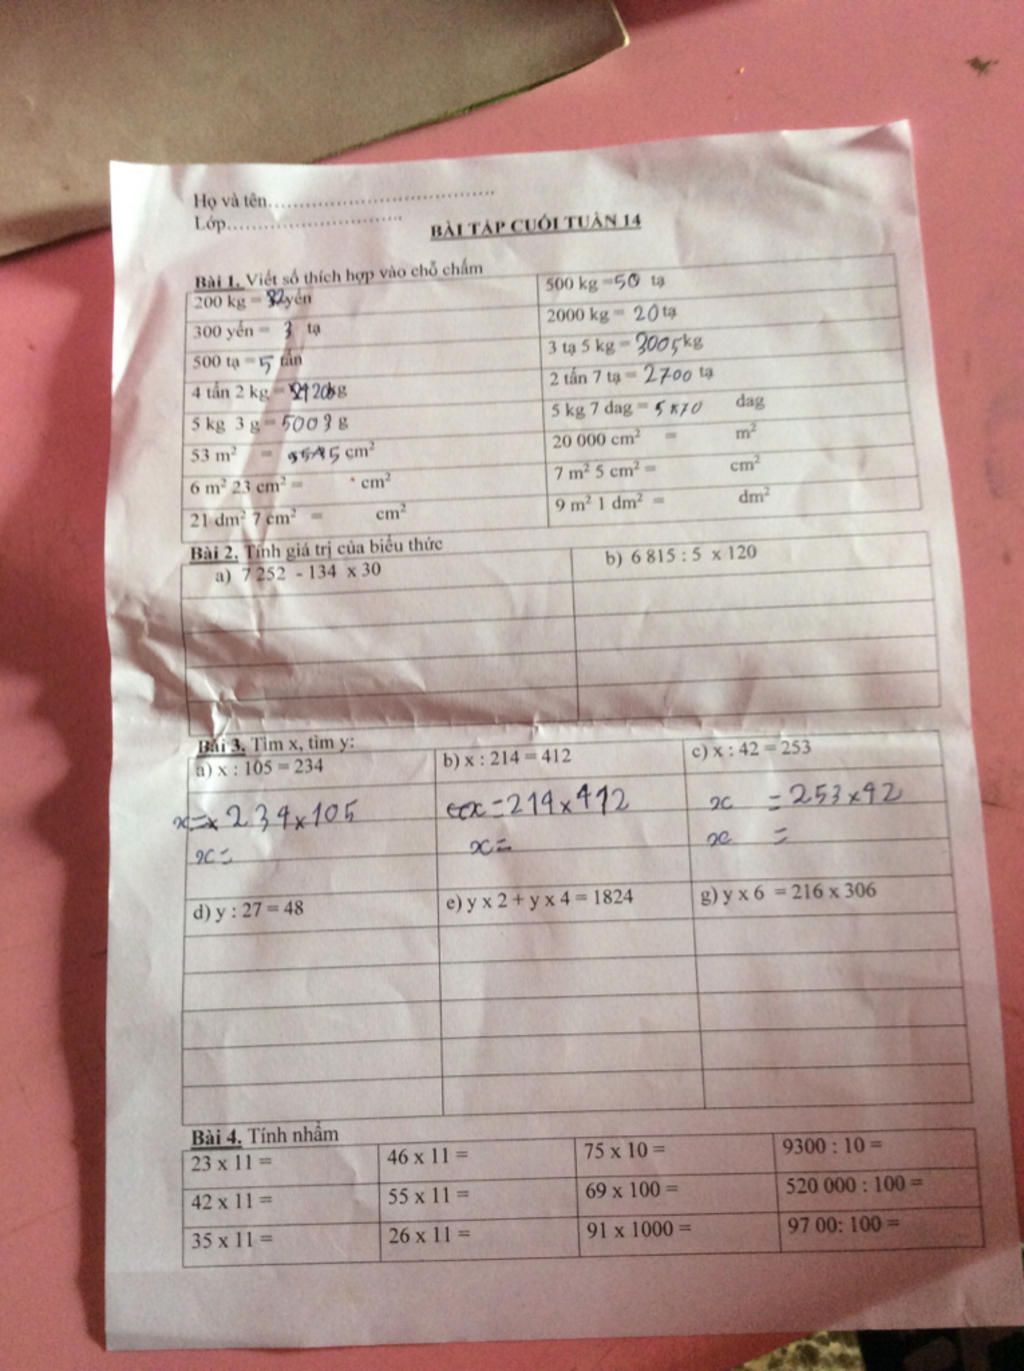 Họ và tên.......................................
Lớp..............................
BÀI TẬP CUỐI TUẦN 14
Bài 1. Viết số thích hợp vào chỗ chấm
200 kg = yến
500 kg = 50 tạ
300 yến = 3 tạ
2000 kg = 20 tạ
500 tạ = 5 tấn
3 tạ 5 kg = 3005 kg
4 tấn 2 kg = kg
2 tấn 7 tạ = 2700 tạ
5 kg 3 g = 5003 g
5 kg 7 dag = dag
53 m² = cm²
20 000 cm² = m²
6 m² 23 cm² = cm²
7 m² 5 cm² = cm²
21 dm² 7 cm² = cm²
9 m² 1 dm² = dm²
Bài 2. Tính giá trị của biểu thức
a) 7 252 - 134 x 30
b) 6 815 : 5 x 120
Bài 3. Tìm x, tìm y:
a) x : 105 = 234
b) x : 214 = 412
c) x : 42 = 253
x = 234 x 105
x = 214 x 412
x = 253 x 42
x =
x =
x =
d) y : 27 = 48
e) y x 2 + y x 4 = 1824
g) y x 6 = 216 x 306
Bài 4. Tính nhẩm
23 x 11 =
46 x 11 =
75 x 10 =
9300 : 10 =
42 x 11 =
55 x 11 =
69 x 100 =
520 000 : 100 =
35 x 11 =
26 x 11 =
91 x 1000 =
97 00: 100 =